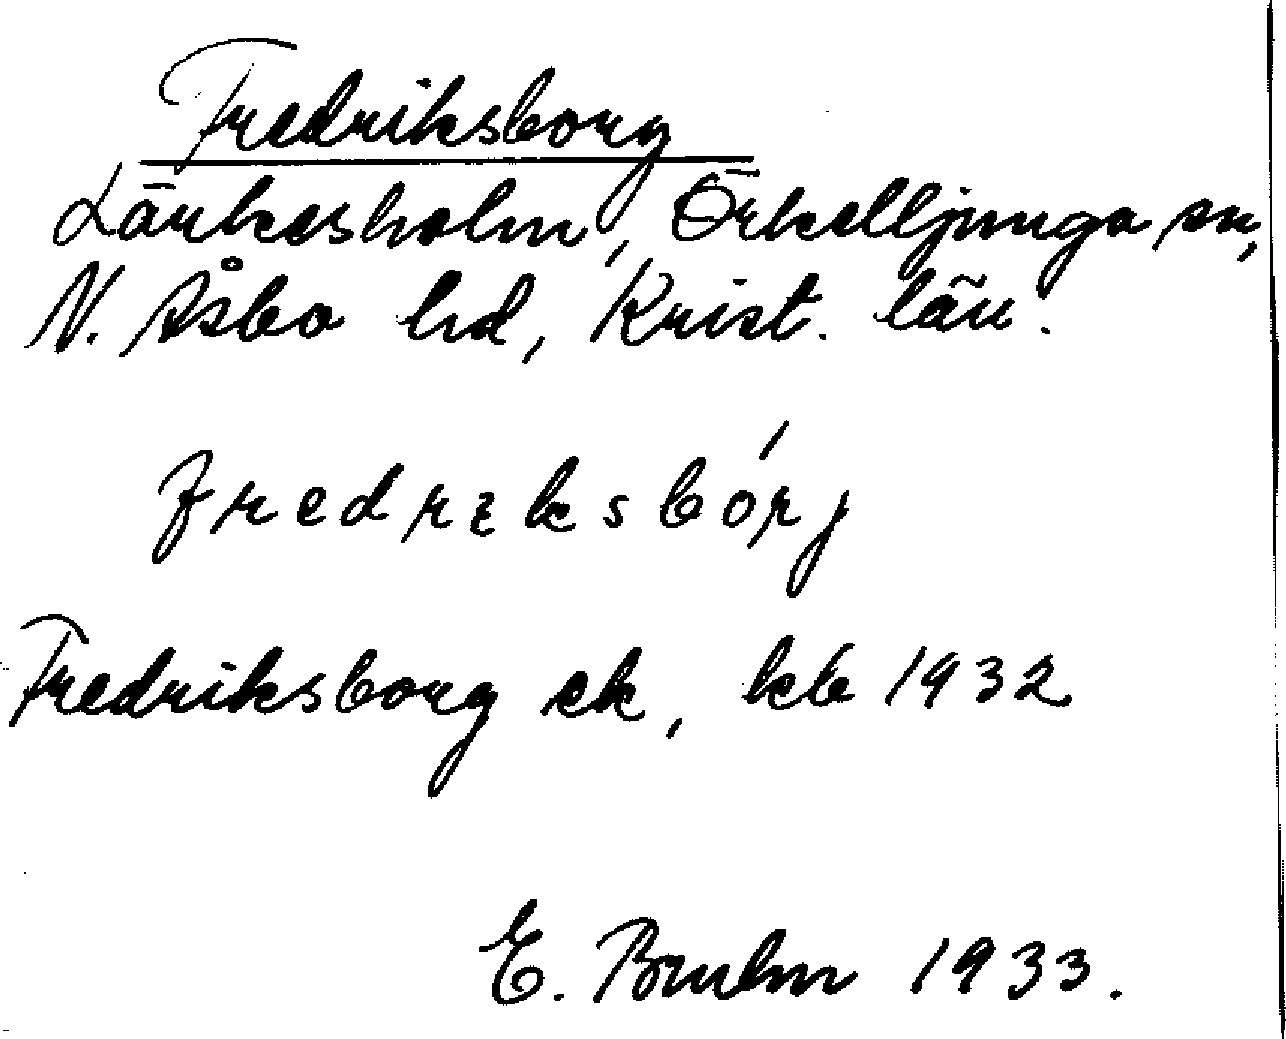 Fredriksborg
Lärkesholm, Örkelljunga sn,
N. Åsbo hd, Krist. län.
fredrɩksbórj
Fredriksborg ek, kb 1932
E. Bruhn 1933.